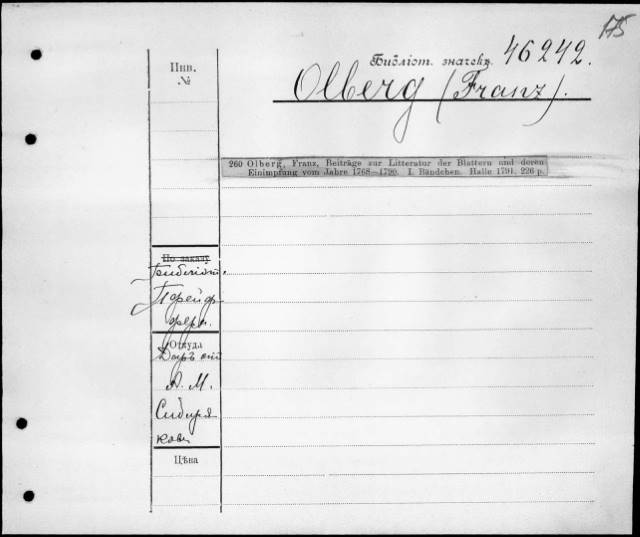 175
Инв.
№
Библіот. значекъ. 46242.
Olberg (Franz).
260 Olberg, Franz, Beiträge zur Litteratur der Blattern und deren
Einimpfung vom Jahre 1768—1790. I. Bändchen. Halle 1791. 226 p.
По заказу
Библіот.
Пфейф-
фера.
Откуда
Даръ
А. М.
Сибиря
кова
Цѣна